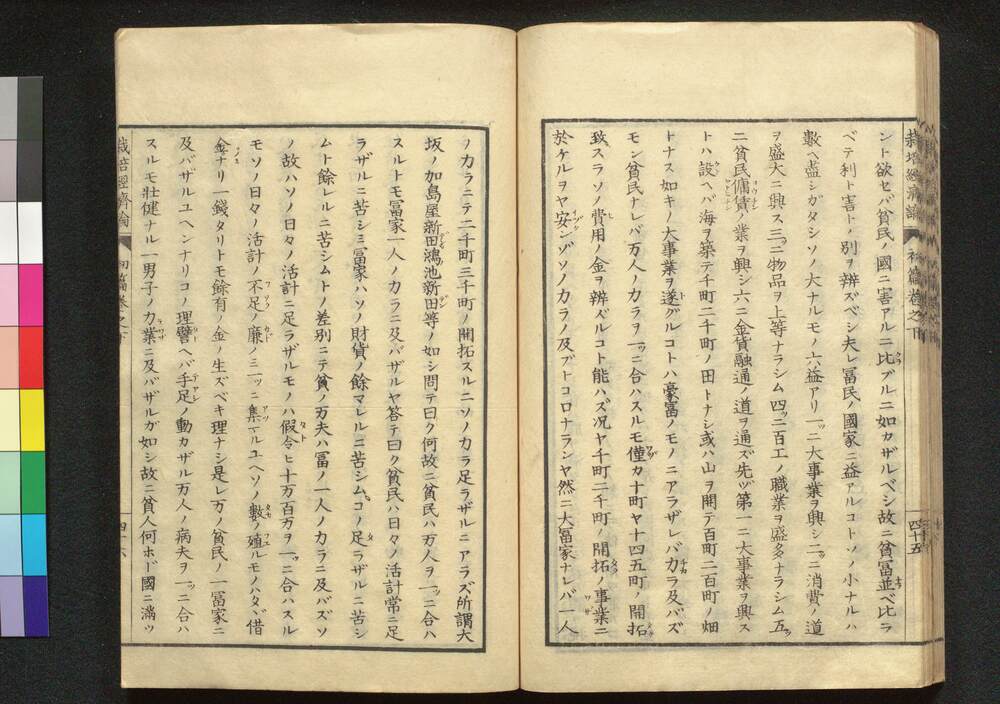 栽培經濟論 初篇卷之下 四十五
ント欲セバ貧民ノ國ニ害アルニ比ブルニ如カザルベシ故ニ貧冨並ベ比ラ
ベテ利ト害トノ別ヲ辨ズベシ夫レ冨民ノ國家ニ益アルコトソノ小ナルハ
數ヘ盡シガタシソノ大ナルモノ六益アリ一ッニ大事業ヲ興シ二ッニ消費ノ道
ヲ盛大ニ興ス三ッニ物品ヲ上等ナラシム四ッニ百工ノ職業ヲ盛多ナラシム五ッ
ニ貧民傭賃ノ業ヲ興シ六ニ金貨融通ノ道ヲ通ズ先ヅ第一ニ大事業ヲ興ス
トハ設ヘバ海ヲ築テ千町二千町ノ田トナシ或ハ山ヲ開テ百町二百町ノ畑
トナス如キノ大事業ヲ遂グルコトハ豪富ノモノニアラザレバカラ及バズ
モン貧民ナレバ万人ノカラヲ一ッニ合ハスルモ僅カ十町ヤ十四五町ノ開拓
致スラソノ費用ノ金ヲ辨ズルコト能ハズ况ヤ千町二千町ノ開拓ノ事業ニ
於ケルヲヤ安ンゾソノカラノ及ブトコロナランヤ然ニ大冨家ナレバ一人
ノカラニテ二千町三千町ノ開拓スルニソノカラ足ラザルニアラズ所謂大
坂ノ加島屋新田鴻池新田等ノ如シ問テ曰ク何故ニ貧民ハ万人ヲ一ッニ合ハ
スルトモ冨家一人ノカラニ及バザルヤ答テ曰ク貧民ハ日々ノ活計常ニ足
ラザルニ苦シミ冨家ハソノ財貨ノ餘マレルニ苦シム。コノ足ラザルニ苦シ
ムト餘レルニ苦シムトノ差別ニテ貧ノ万夫ハ冨ノ一人ノカラニ及バズソ
ノ故ハソノ日々ノ活計ニ足ラザルモノハ假令ヒ十万百万ヲ一ッニ合ハスル
モソノ日々ノ活計ノ不足ノ廉ノミ一ッニ集マルユヘソノ數ノ殖ルモノハタヾ借
金ナリ一錢タリトモ餘有ノ金ノ生ズベキ理ナシ是レ万ノ貧民ノ一冨家ニ
及バザルユヘンナリコノ理譬ヘバ手足ノ動カザル万人ノ病夫ヲ一ッニ合ハ
スルモ壮健ナル一男子ノ力業ニ及バザルガ如シ故ニ貧人何ホド國ニ滿ツ
栽培經濟論 初篇卷之下 四十六